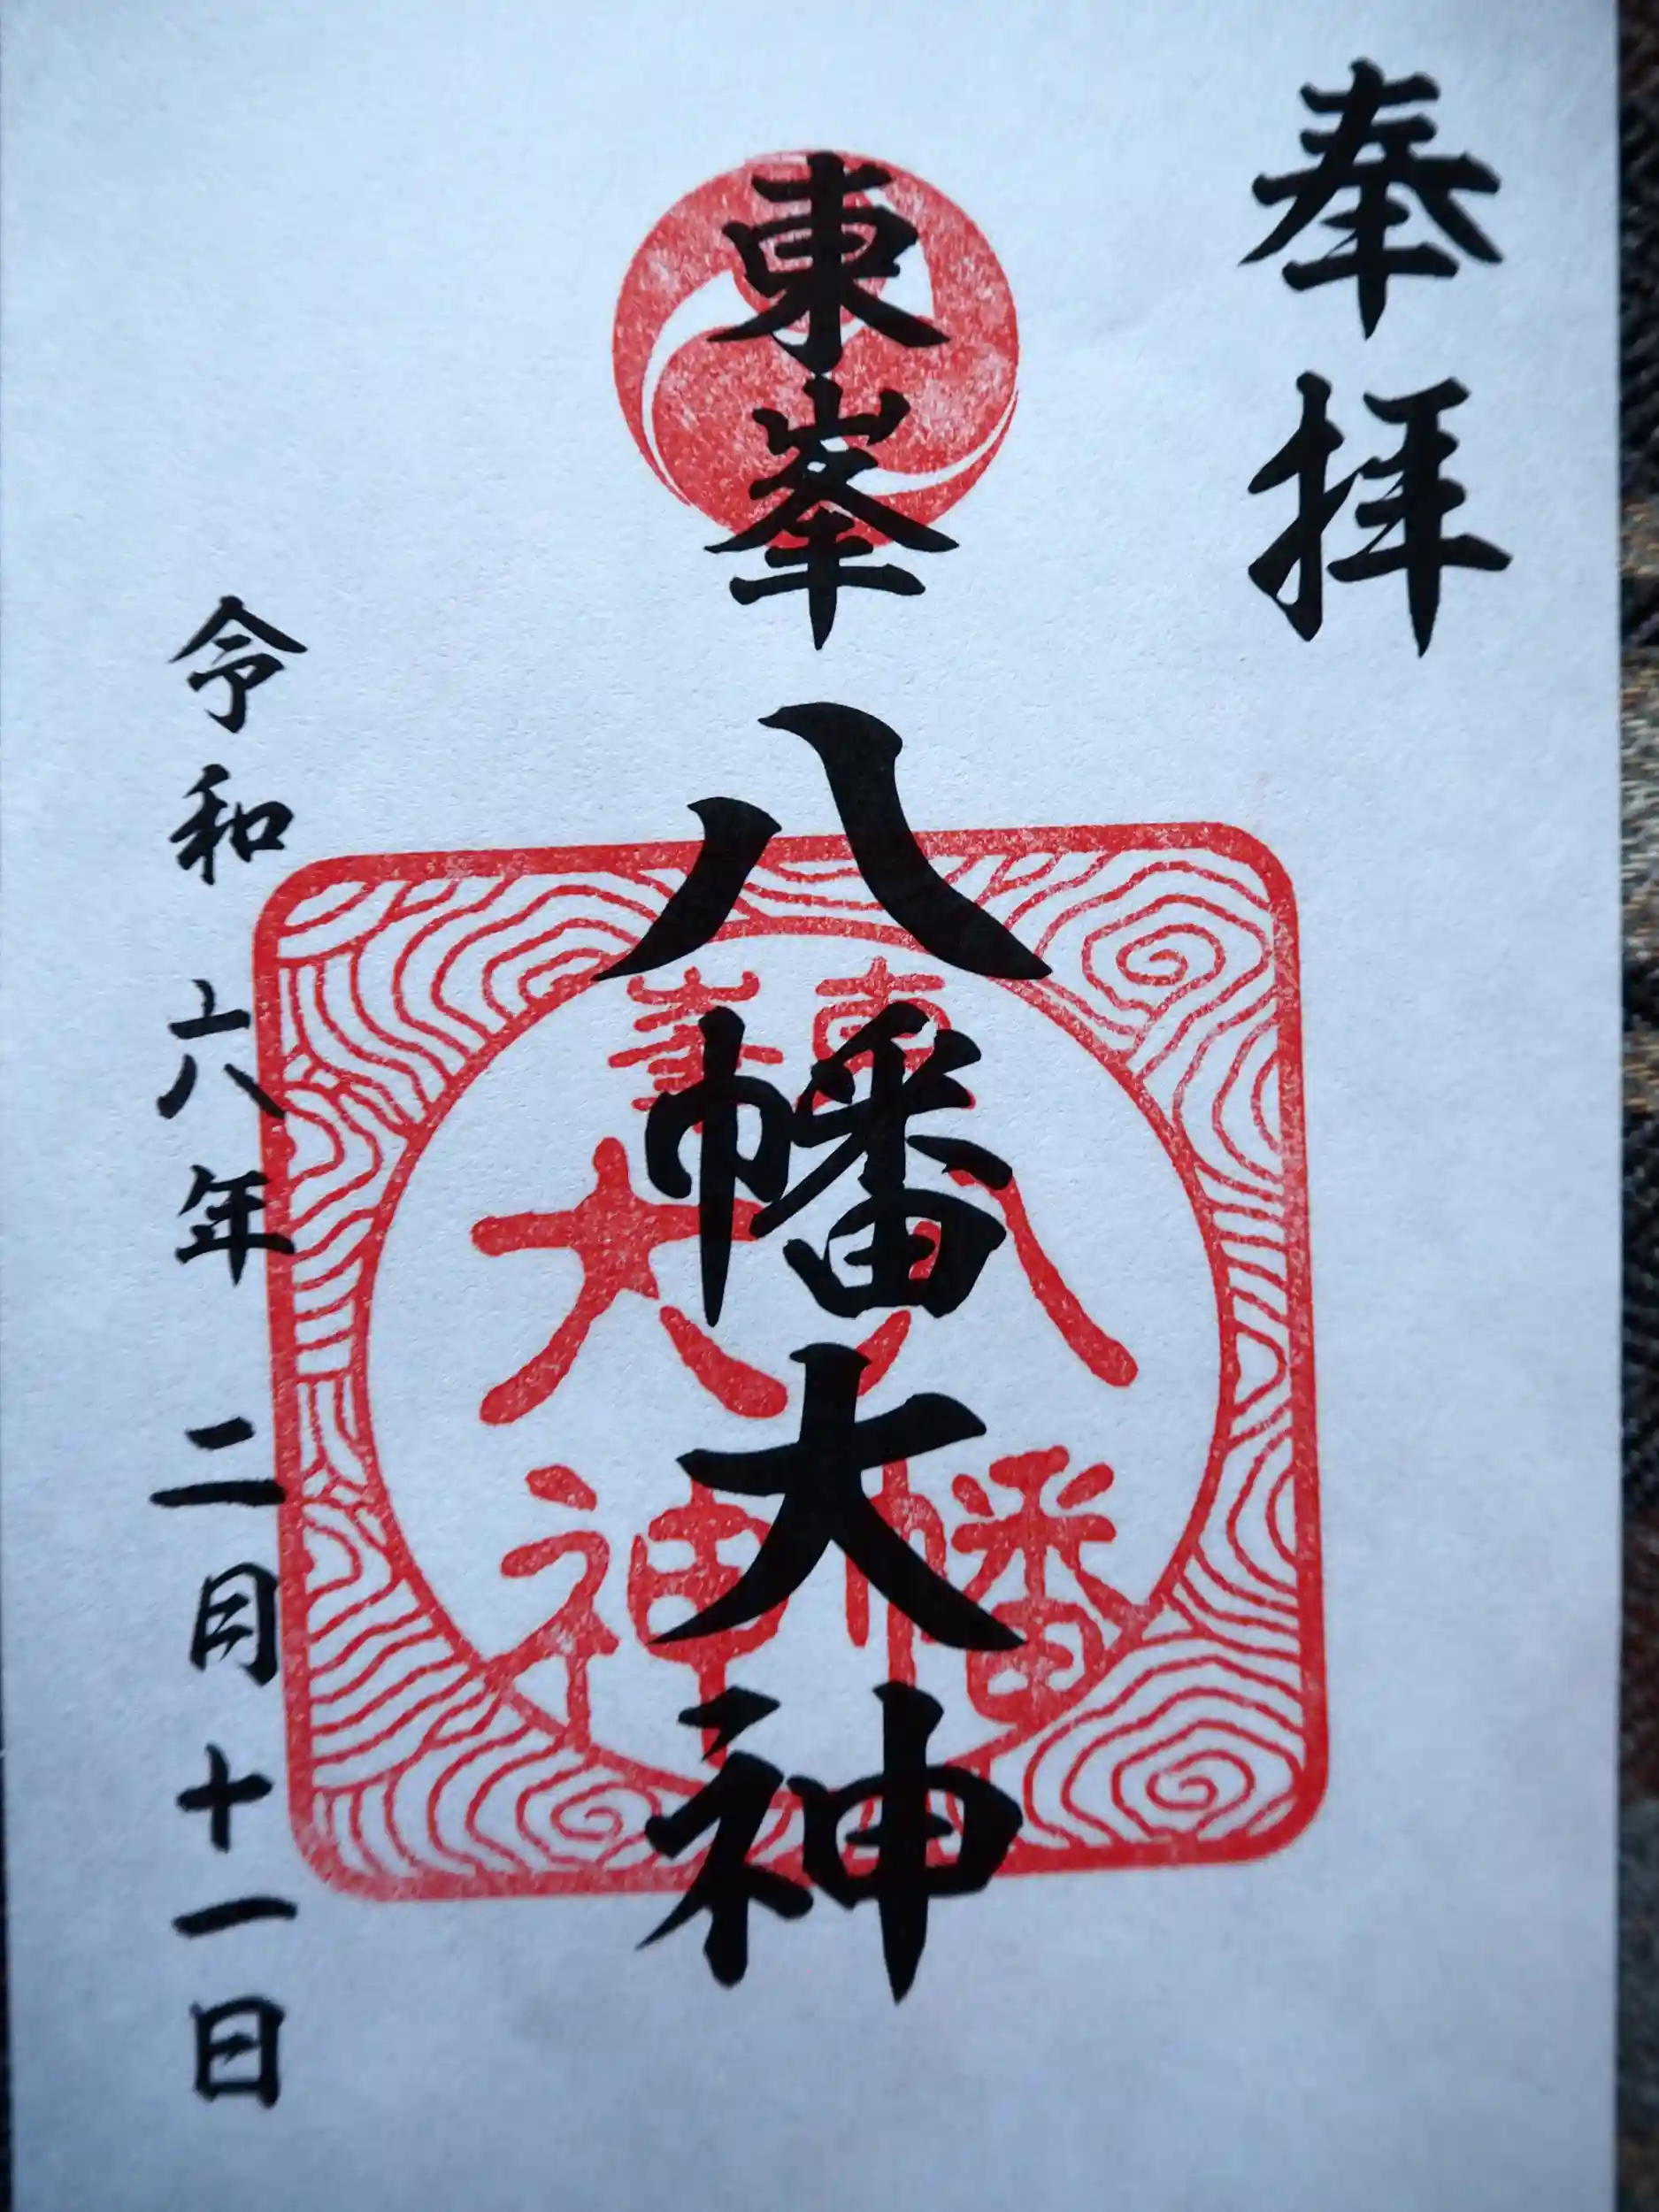 奉拝
東峯
八幡大神
令和六年二月十一日
東峯
八幡
大神